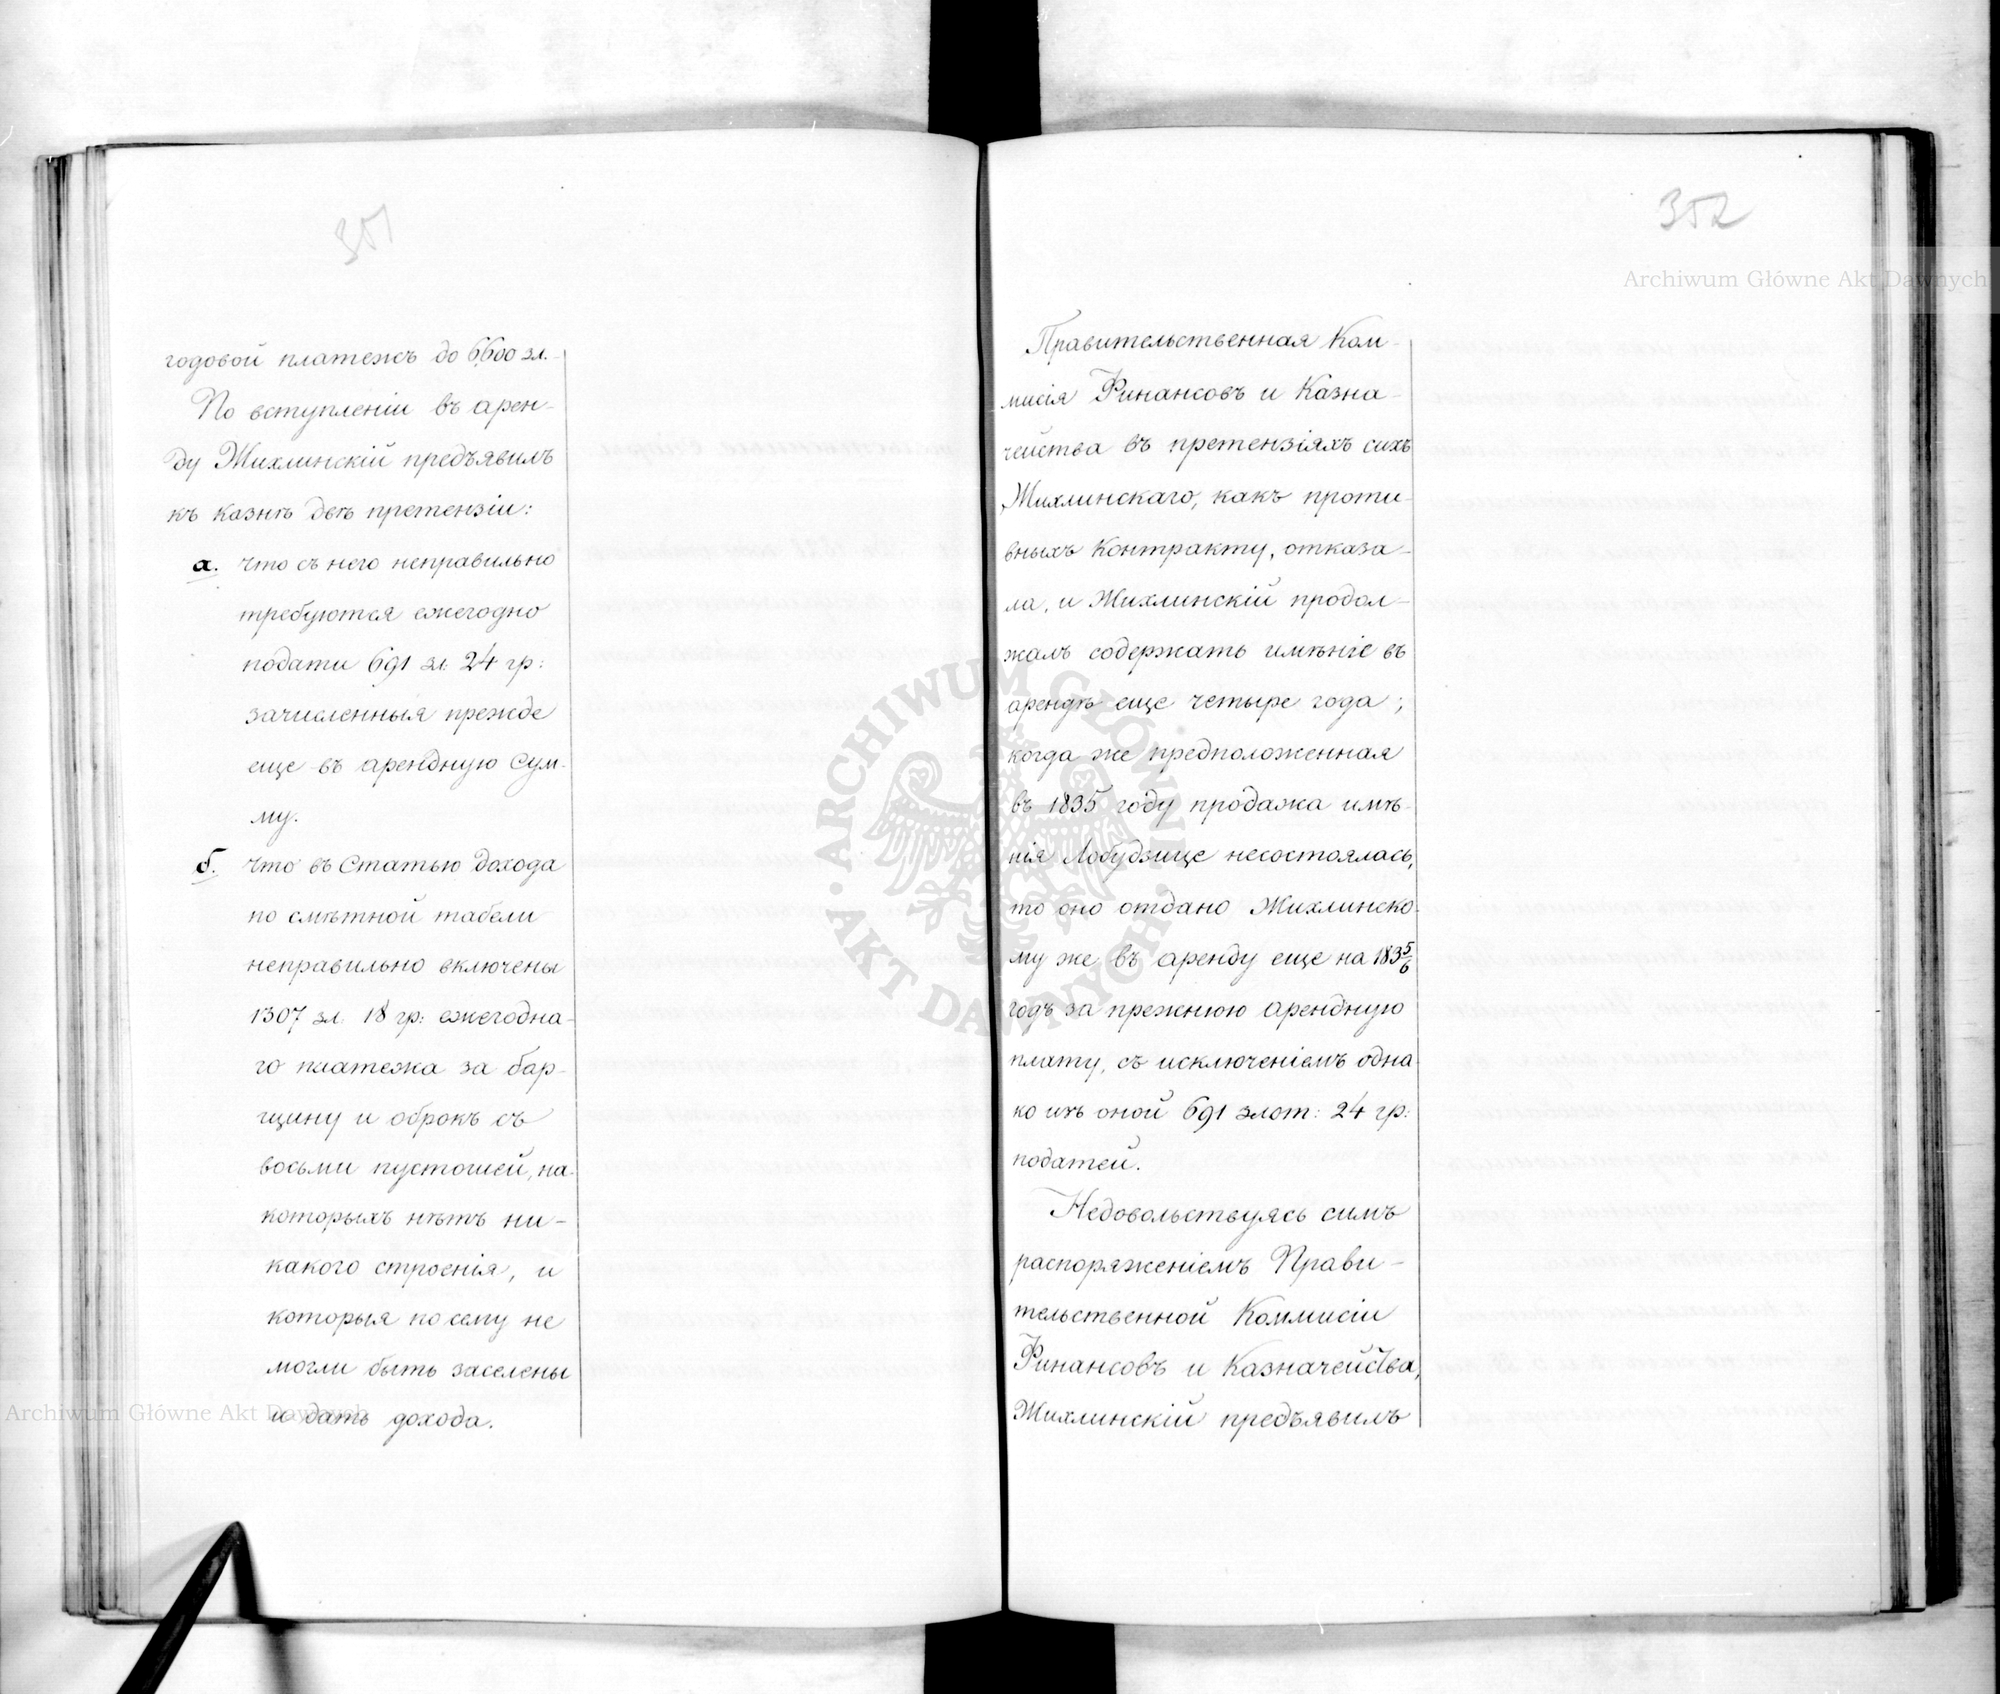 351
годовой платежъ до 6600 зл.
По вступленіи въ арен-
ду Жихлинскій предъявилъ
къ казнѣ двѣ претензіи:
а. что съ него неправильно
требуются ежегодно
подати 691 зл. 24 гр:
зачисленныя прежде
еще въ арендную сум-
му.
б. что въ Статью дохода
по смѣтной табели
неправильно включены
1307 зл. 18 гр: ежегодна-
го платежа за бар-
щину и оброкъ съ
восьми пустошей, на
которыхъ нѣтъ ни-
какого строенія, и
которыя по сему не
могли быть заселены
и дать дохода.
352
Правительственная Ком-
мисія Финансовъ и Казна-
чейства въ претензіяхъ сихъ
Жихлинскаго, какъ проти-
вныхъ контракту, отказа-
ла, и Жихлинскій продол-
жалъ содержать имѣніе въ
арендѣ еще четыре года;
когда же предположенная
въ 1835 году продажа имѣ-
нія Лобудзице несостоялась,
то оно отдано Жихлинско-
му же въ аренду еще на 1835/6
годъ за прежнюю арендную
плату, съ исключеніемъ одна-
ко изъ оной 691 злот: 24 гр:
податей.
Недовольствуясь симъ
распоряженіемъ Прави-
тельственной Коммисіи
Финансовъ и Казначейства,
Жихлинскій предъявилъ
Archiwum Główne Akt Dawnych
Archiwum Główne Akt Dawnych
ARCHIWUM GŁÓWNE AKT DAWNYCH